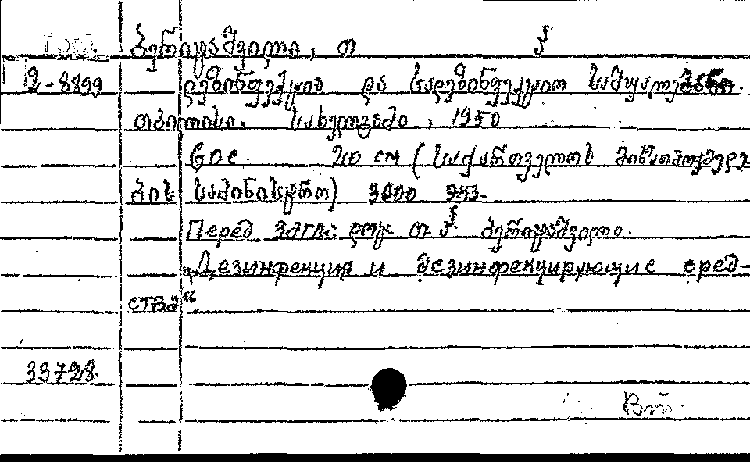 ბერიკაშვილი, თ
2-8899 დეზინფექცია და სადეზინფექციო საშუალებანი.
თბილისი. სახელგამი, 1950
60с 20 см (საქართველოს მიწათმოქმედე
ბის სამინისტრო) 3000
Перед загл: თ. ბერიკაშვილი.
„Дезинфекция и дезинфекцирующие сред-
ства“
33728